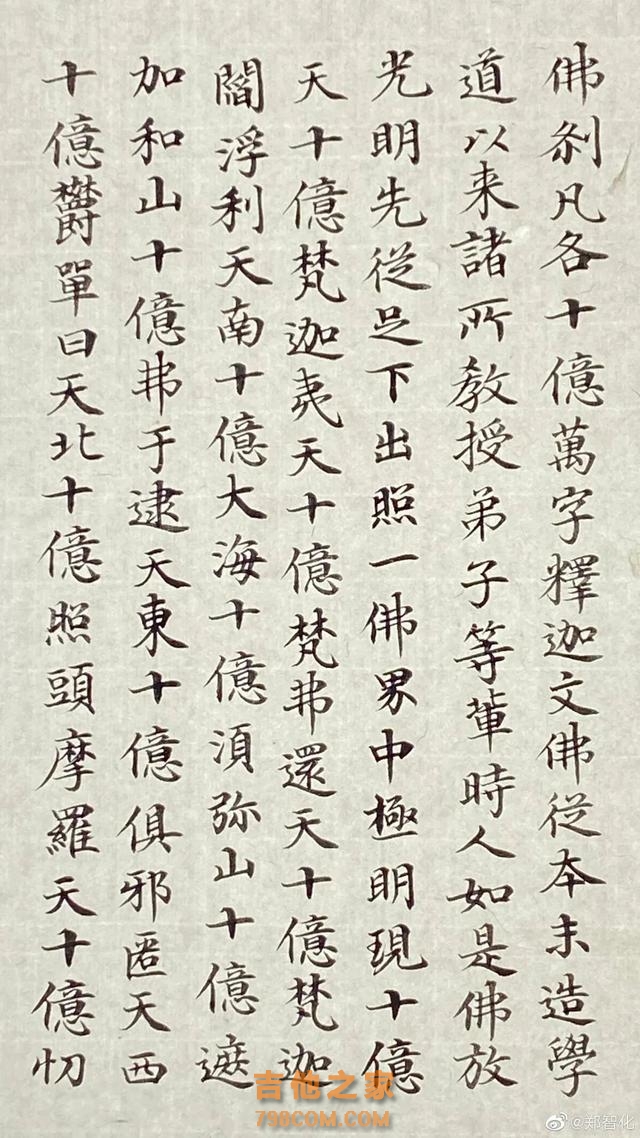 佛刹凡各十億萬字釋迦文佛從本未造學
道以来諸所教授弟子等輩時人如是佛放
光明先從足下出照一佛界中極明現十億
天十億梵迦夷天十億梵弗還天十億梵迦
閻浮利天南十億大海十億須弥山十億遮
加和山十億弗于逮天東十億俱邪匿天西
十億欝單曰天北十億照頭摩羅天十億忉
吉他之家
798COM.COM
@郑智化